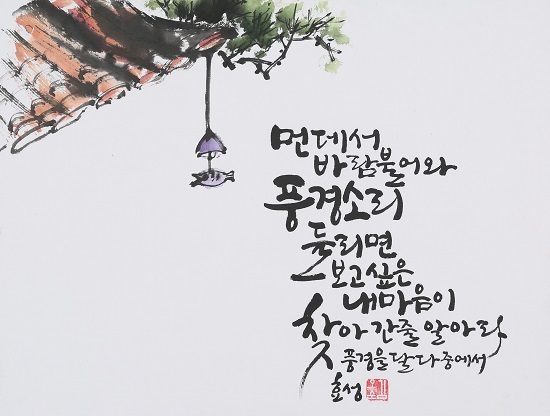 먼데서
바람불어와
풍경소리
들리면
보고싶은
내마음이
찾아간줄 알아라
풍경을 달다 중에서
효성